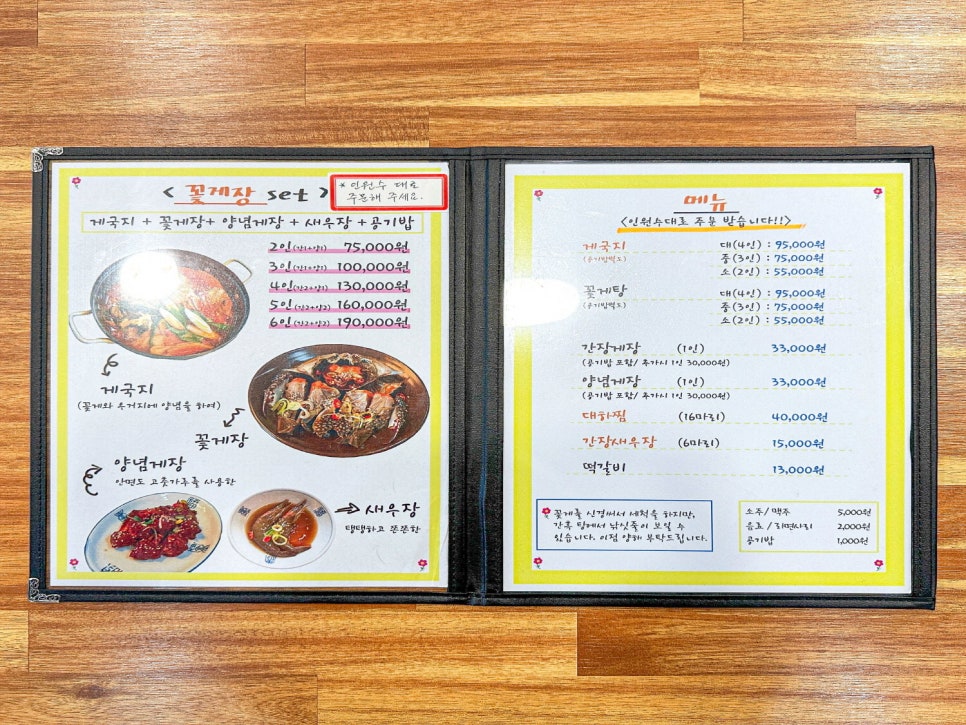 < 꽃게장 set >
* 인원수 대로
주문해 주세요.
게국지 + 꽃게장 + 양념게장 + 새우장 + 공기밥
2인(간1+양1) 75,000원
3인 100,000원
4인 130,000원
5인 160,000원
6인 190,000원
게국지
(꽃게와 우거지에 양념을 하여)
꽃게장
양념게장
안면도 고춧가루를 사용한
새우장
탱탱하고 쫀쫀한
메뉴
<인원수대로 주문 받습니다!!>
게국지 대(4인) : 95,000원
(공기밥별도) 중(3인) : 75,000원
소(2인) : 55,000원
꽃게탕 대(4인) : 95,000원
(공기밥별도) 중(3인) : 75,000원
소(2인) : 55,000원
간장게장 (1인) 33,000원
(공기밥 포함/ 추가시 1인 30,000원)
양념게장 (1인) 33,000원
(공기밥 포함/ 추가시 1인 30,000원)
대하찜 (16마리) 40,000원
간장새우장 (6마리) 15,000원
떡갈비 13,000원
꽃게를 신경써서 세척을 하지만,
간혹 탕에서 낚싯줄이 보일 수
있습니다. 이점 양해 부탁드립니다.
소주/맥주 5,000원
음료/라면사리 2,000원
공기밥 1,000원